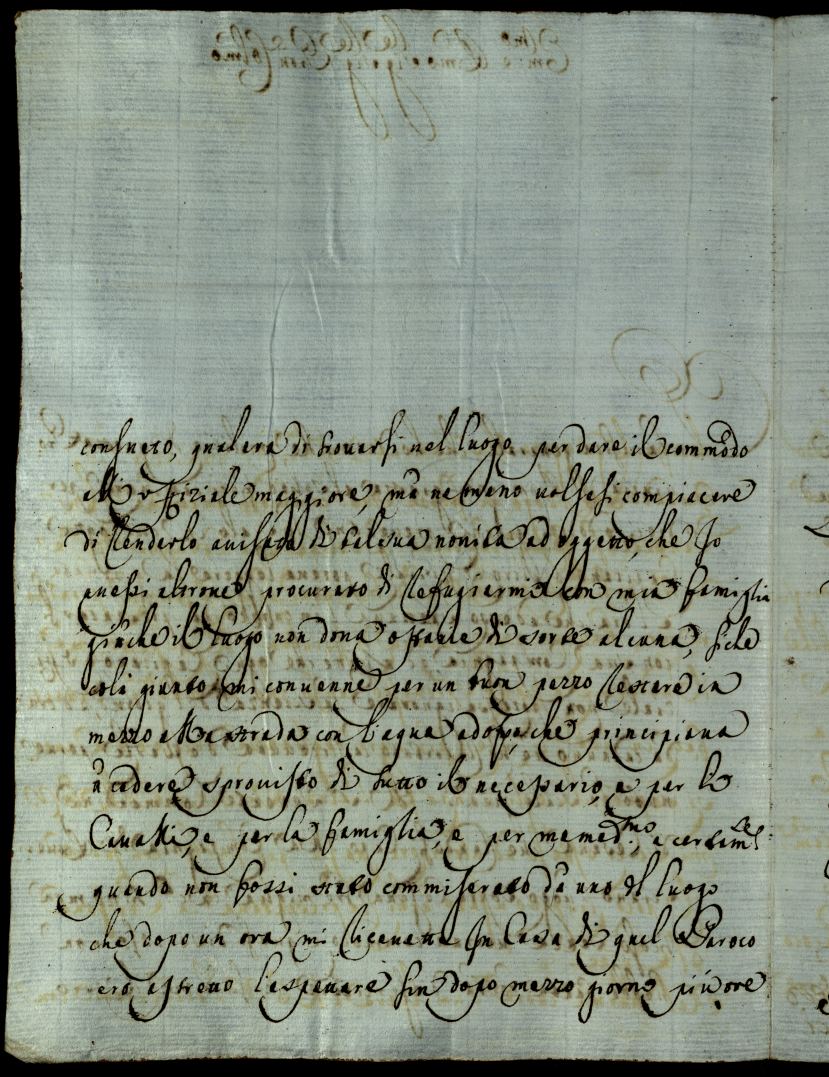 consueto, qual era di trouarsi nel luogo per dare il commodo
all'offiziale maggiore, mà ne meno uolse si compiacere
di renderlo auisato di tal sua nouità ad oggetto, che Io
auessi altroue procurato di reffugiarmi con mia famiglia
giàche il luogo non dona ostarie di sorte alcuna, siche
colà giunto mi conuenne per un buon pezzo restare in
mezzo alla strada con l'aqua adosso, che principiaua
à cadere sprouisto di tutto il necessario, e per li
Caualli, e per la famiglia, e per me med.mo, e certam.te
quando non fossi stato commiserato dà uno del luogo
che dopo un ora mi riceuette In Casa di quel Paroco
ero astretto l'aspettare sin dopo mezzo giorno più ore